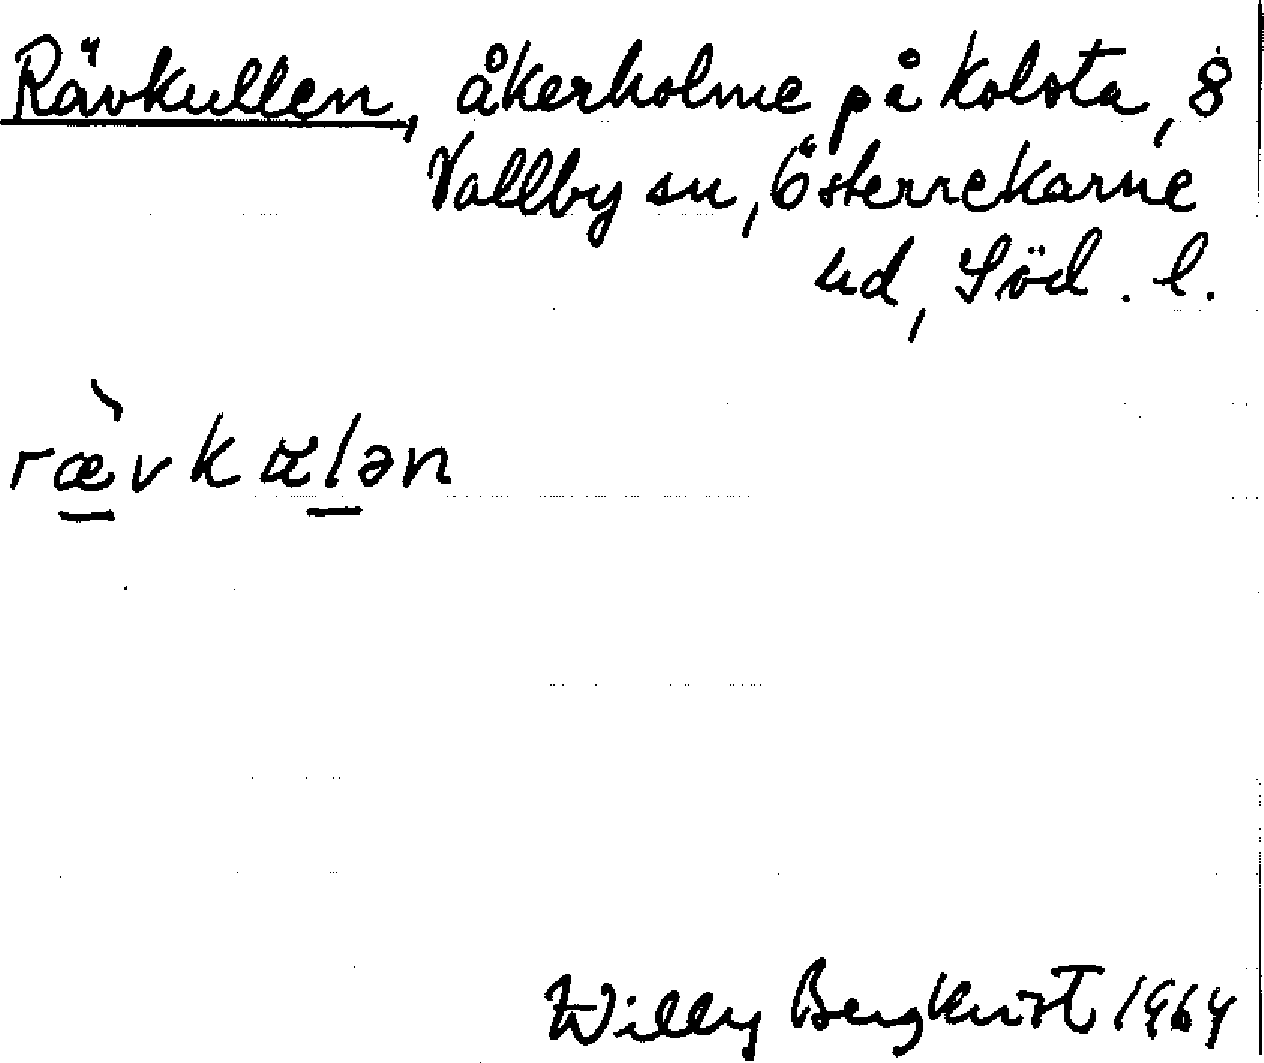 Rävkullen, åkerholme på Kolsta, 8
Vallby sn, Österrekarne
hd, Söd. l.
Willy Bergkvist 1964